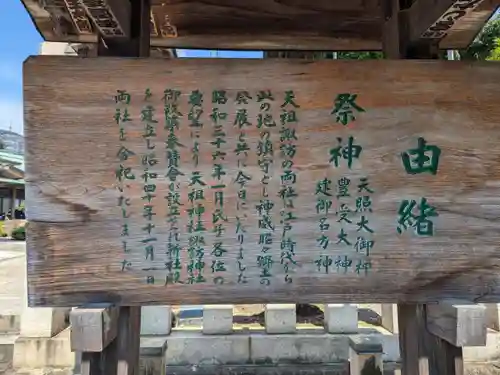 由緒
祭神
天照大御神
豊受大神
建御名方神
天祖諏訪の両社は江戸時代から
此の地の鎮守とし神威昭々郷土の
発展と共に今日にいたりました
昭和三十六年一月氏子各位の
要望により天祖神社諏訪神社
御改築奉賛会が設立され新社殿
を建立し昭和四十年十一月一日
両社を合祀いたしました